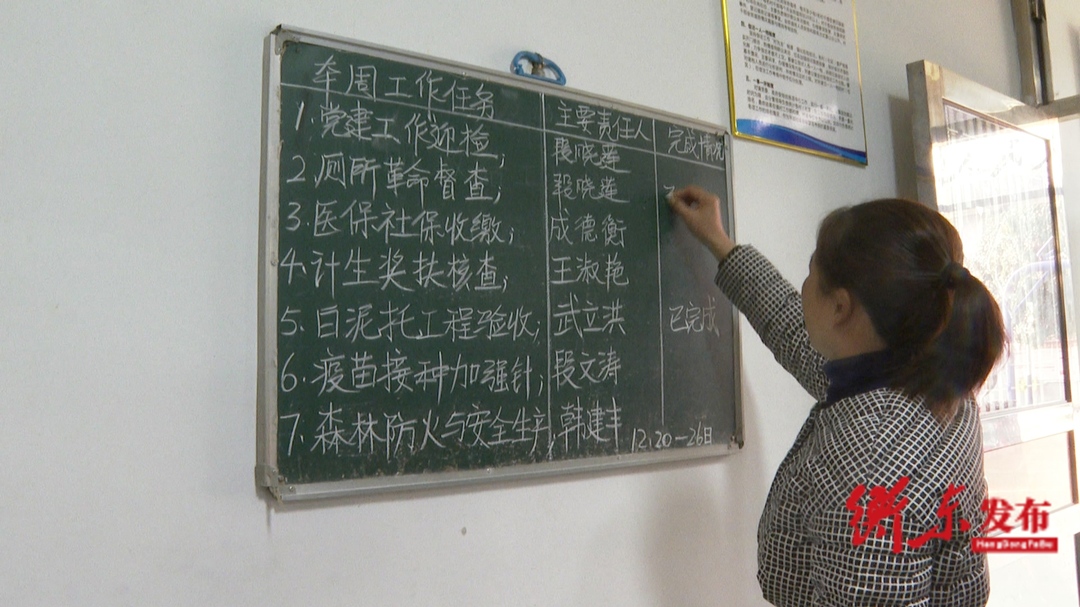 本周工作任务 主要责任人 完成情况
1.党建工作迎检; 段晓莲
2.厕所革命督查; 段晓莲
3.医保社保收缴; 成德衡
4.计生奖扶核查; 王淑艳
5.白泥托工程验收; 武立洪 已完成
6.疫苗接种加强针; 段文涛
7.森林防火与安全生产; 韩建丰
12.20—26日
衡东发布
HengDongFaBu